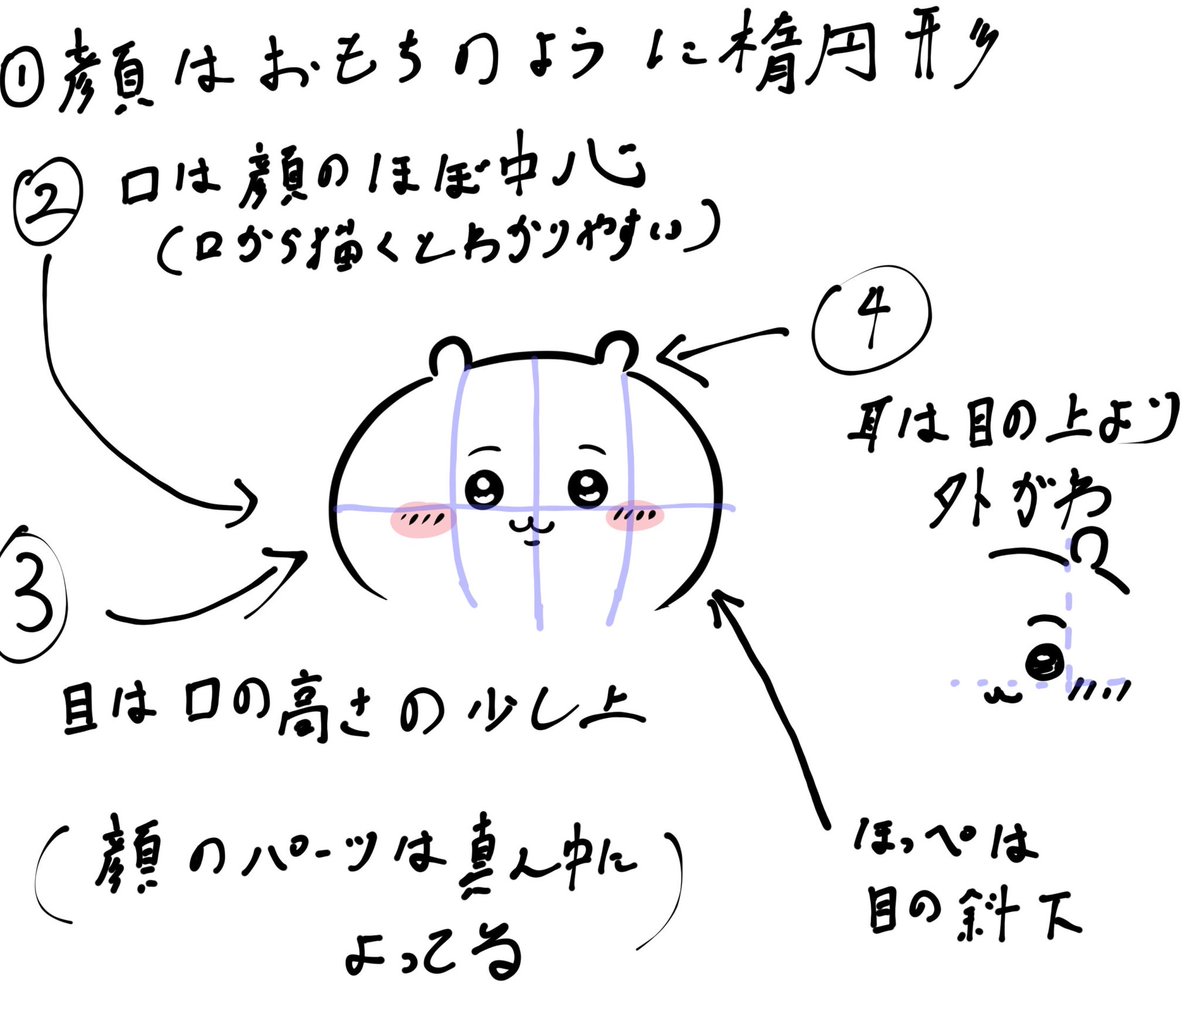 ①顔はおもちのように楕円形
② 口は顔のほぼ中心
(口から描くとわかりやすい)
③
目は口の高さの少し上
(顔のパーツは真ん中に
よってる)
④
耳は目の上より
外がわ
ほっぺは
目の斜下